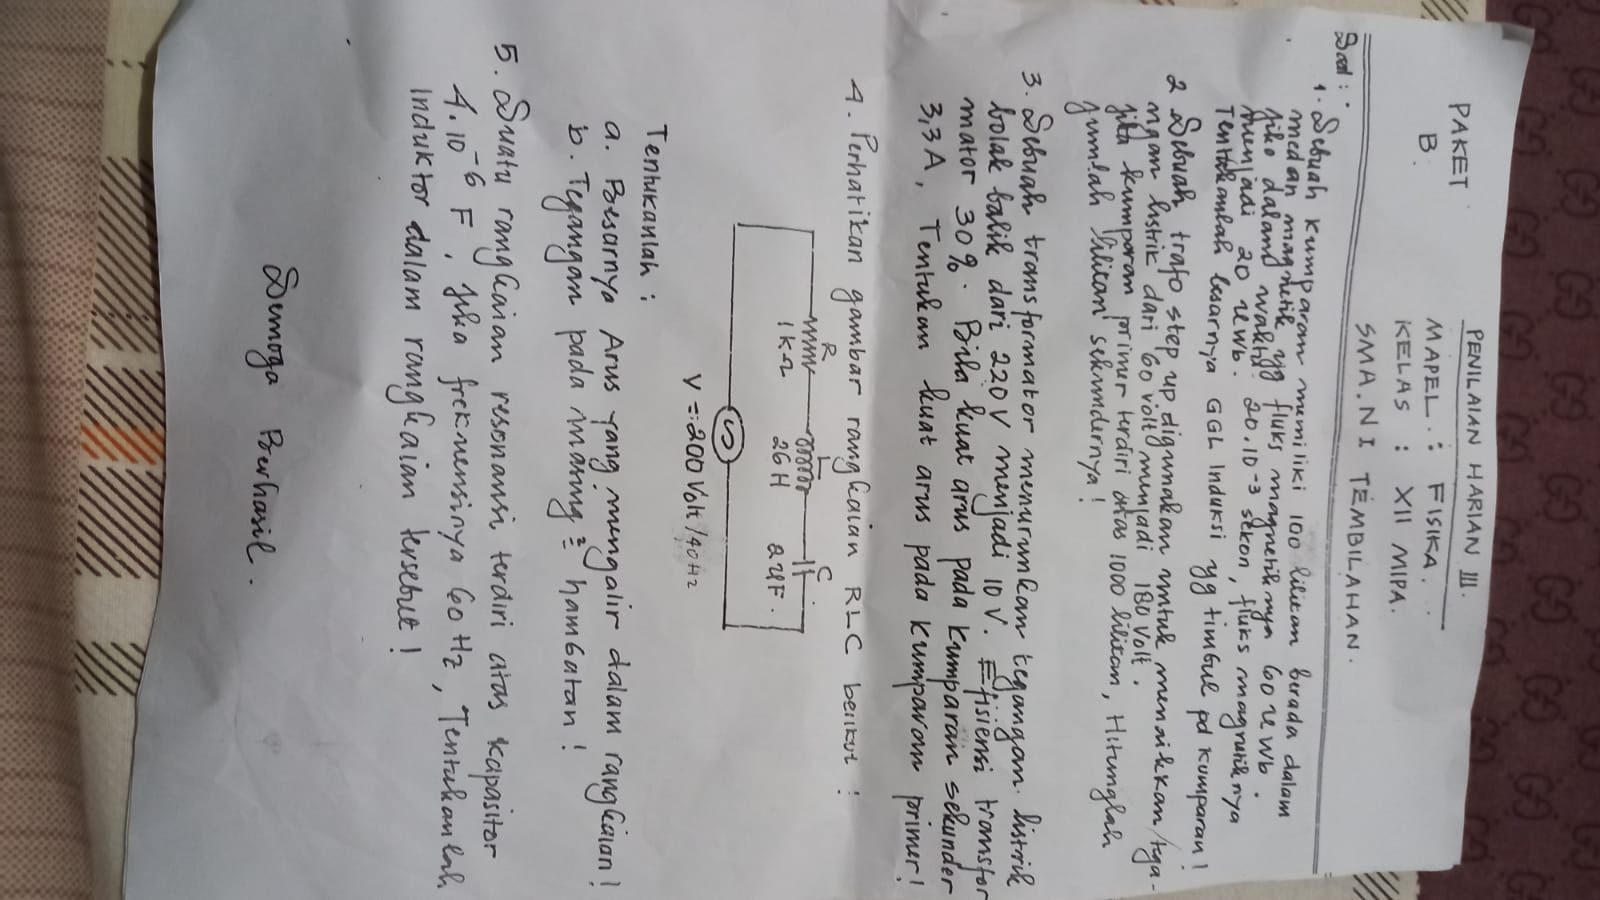 PENILAIAN HARIAN III.
PAKET
B.
MAPEL. : FISIKA.
KELAS : XII MIPA.
SMA.N I TEMBILAHAN.
Soal :
1. Sebuah kumparan memiliki 100 lilitan berada dalam
medan magnetik yg fluks magnetiknya 60 uWb.
Jika dalam waktu 20.10⁻³ sekon, fluks magnetiknya
menjadi 20 uWb.
Tentukanlah besarnya GGL Induksi yg timbul pd kumparan!
2 Sebuah trafo step up digunakan untuk menaikkan tega-
ngan listrik dari 60 volt menjadi 180 Volt.
Jika kumparan primer terdiri atas 1000 lilitan, Hitunglah
jumlah lilitan sekundernya!
3. Sebuah transformator menurunkan tegangan listrik
bolak balik dari 220 V menjadi 10 V. Efisiensi transfor
mator 30%. Bila kuat arus pada kumparan sekunder
3,3 A, Tentukan kuat arus pada kumparan primer!
4. Perhatikan gambar rangkaian RLC berikut !
R L C
1 KΩ 26 H 2 uF.
V = 200 Volt /40 Hz
Tentukanlah :
a. Besarnya Arus yang mengalir dalam rangkaian!
b. Tegangan pada masing² hambatan!
5. Suatu rangkaian resonansi terdiri atas kapasitor
4.10⁻⁶ F, Jika frekuensinya 60 Hz, Tentukanlah
Induktor dalam rangkaian tersebut!
Semoga Berhasil.